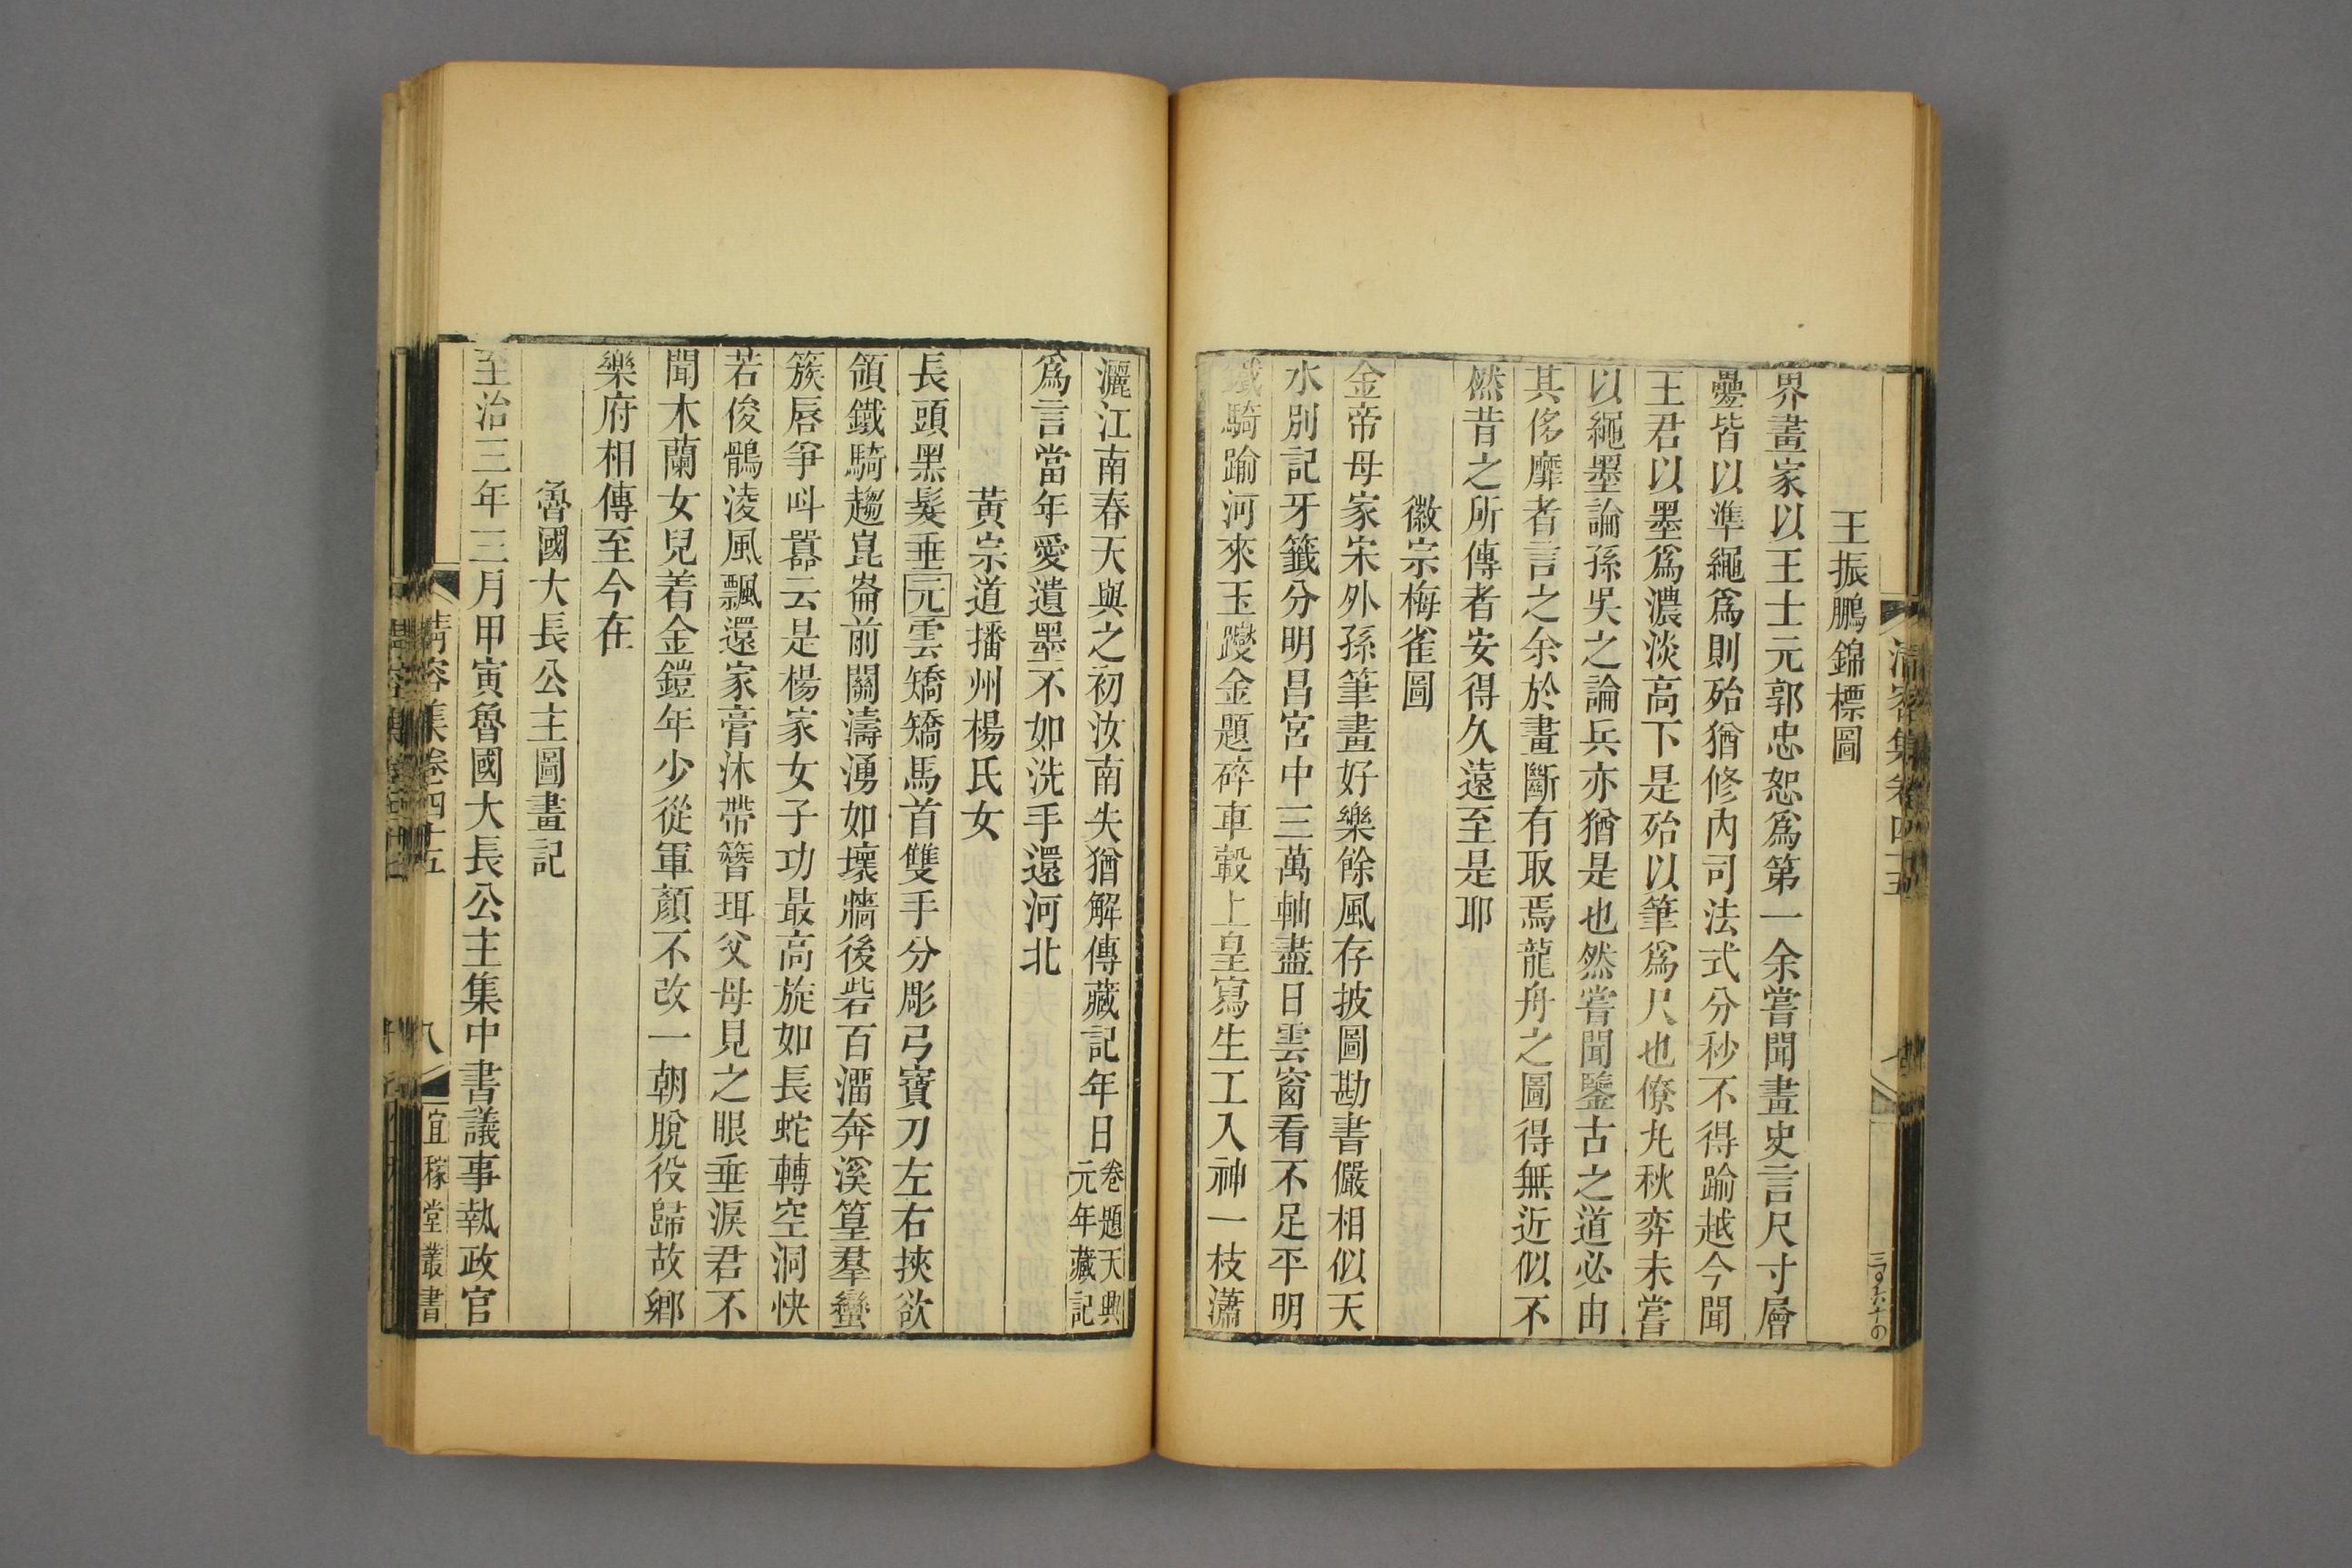 王振鵬錦標圖
界畫家以王士元郭忠恕爲第一余嘗聞畫史言尺寸層
疊皆以準繩爲則殆猶修內司法式分秒不得踰越今聞
王君以墨爲濃淡高下是殆以筆爲尺也僚丸秋弈未嘗
以繩墨論孫吳之論兵亦猶是也然嘗聞鑒古之道必由
其侈靡者言之余於畫斷有取焉龍舟之圖得無近似不
然昔之所傳者安得久遠至是耶
徽宗梅雀圖
金帝母家宋外孫筆畫好樂餘風存披圖勘書儼相似天
水別記牙籤分明昌宮中三萬軸盡日雲窗看不足平明
鐵騎踰河來玉躞金題碎車轂上皇寫生工入神一枝瀟
灑江南春天與之初汝南失猶解傳藏記年日卷題天興元年藏記
爲言當年愛遺墨不如洗手還河北
黃宗道播州楊氏女
長頭黑髮垂元雲矯矯馬首雙手分彫弓寶刀左右挾欲
領鐵騎趨崑崙前關濤湧如壞牆後砦百溜奔溪篁羣蠻
簇唇爭叫嚣云是楊家女子功最高旋如長蛇轉空洞快
若俊鶻淩風飄還家膏沐帶簪珥父母見之眼垂淚君不
聞木蘭女兒着金鎧年少從軍顏不改一朝脫役歸故鄉
樂府相傳至今在
魯國大長公主圖畫記
至治三年三月甲寅魯國大長公主集中書議事執政官
清容集卷四十五
八
宜稼堂叢書